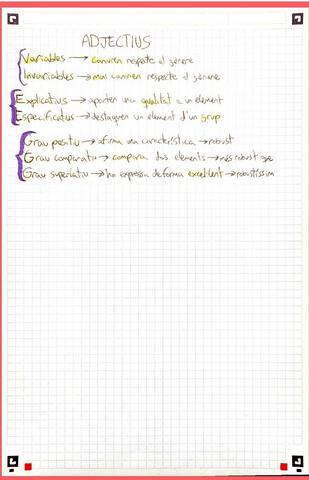 ADJECTIUS
Variables → canvien respecte al gènere
Invariables → mai canvien respecte al gènere
Explicatius → aporten una qualitat a un element
Especificatius → destaquen un element d'un grup
Grau positiu → afirma una característica → robust
Grau comparatiu → compara dos elements → més robust que
Grau superlatiu → ho expressa de forma excel·lent → robustíssim